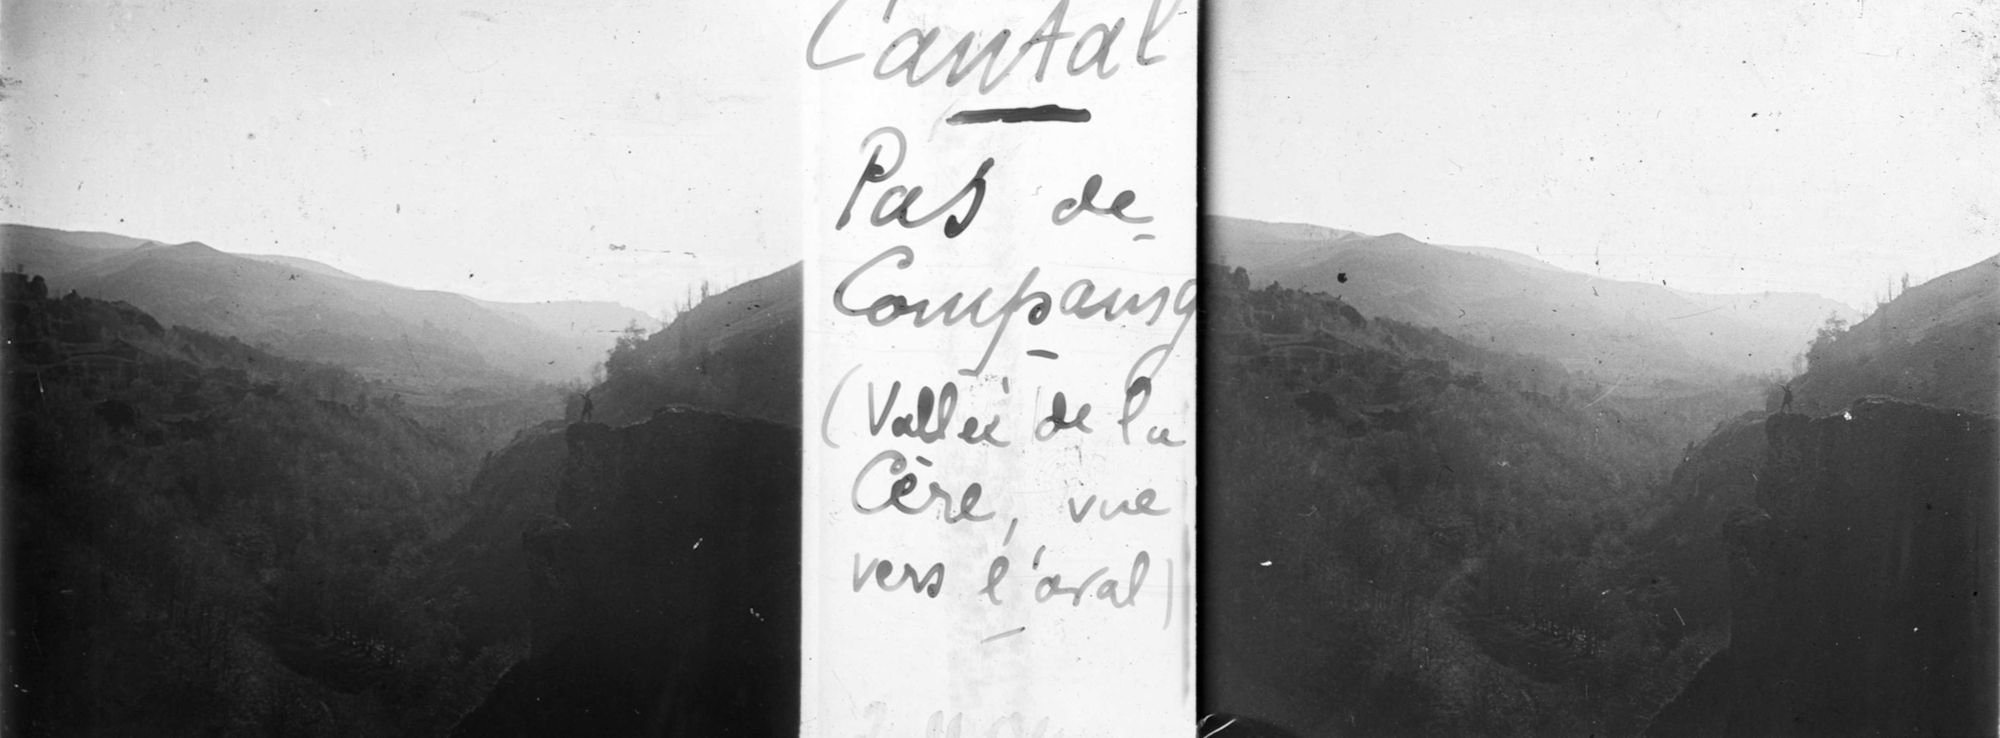 Cantal
Pas de
Compaing
(Vallée de la
Cère, vue
vers l'aval)